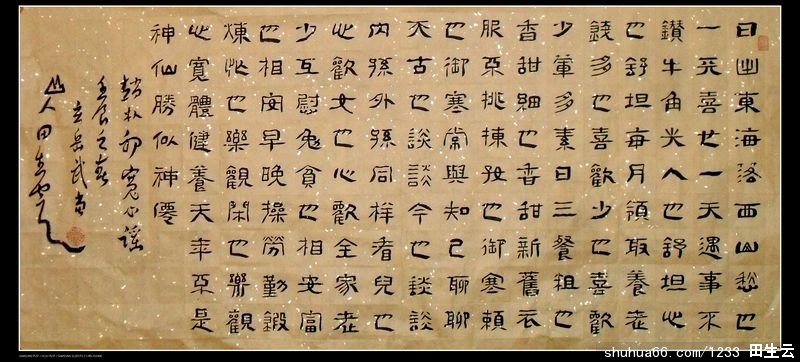 日出東海落西山愁也
一天喜也一天遇事不
鑽牛角尖人也舒坦心
也舒坦每月領取養老
錢多也喜歡少也喜歡
少葷多素日三餐粗也
香甜細也香甜新舊衣
服不挑揀好也御寒賴
也御寒常與知己聊聊
天古也談談今也談談
內孫外孫同樣看兒也
心歡女也心歡全家老
少互慰勉貧也相安富
也相安早晚操勞勤鍛
煉忙也樂觀閑也樂觀
心寬體健養天年不是
神仙勝似神僊
趙朴初寬心謠
壬辰之春
岳武當
山人田生雲
shuhua66.com/1233 田生云